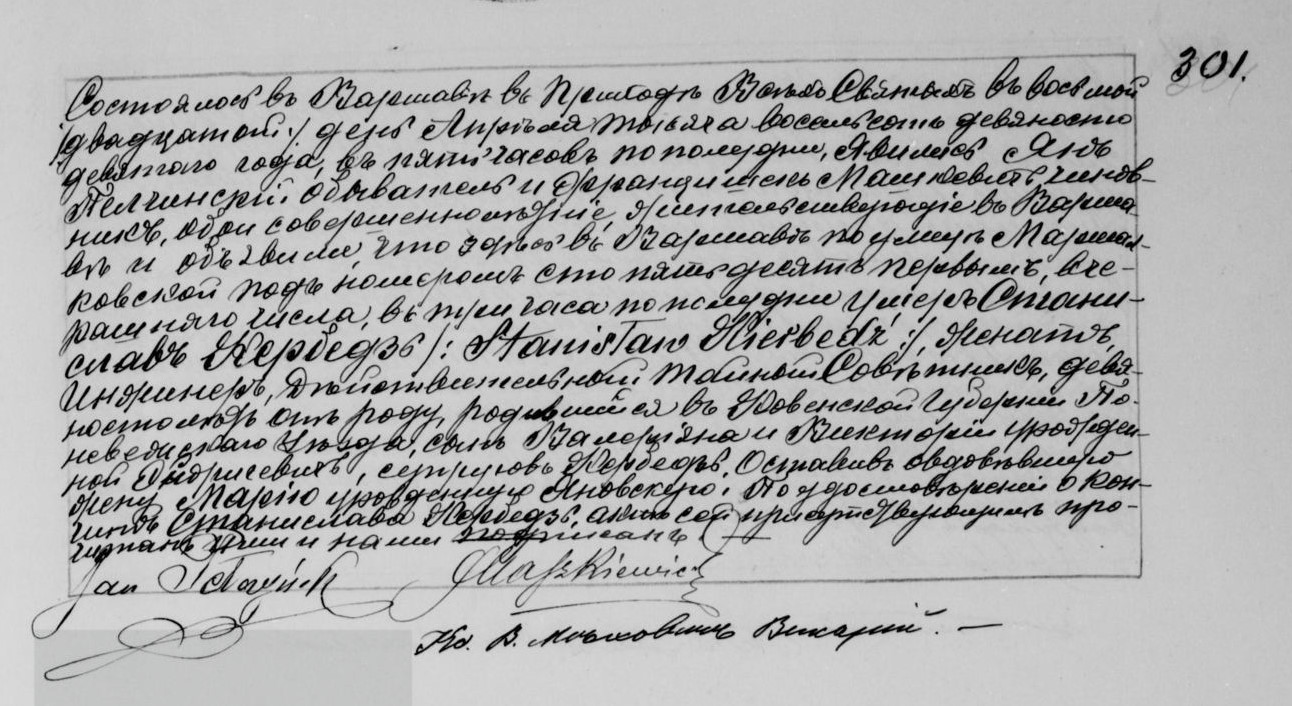 301.
Состоялось въ Варшавѣ въ Приходѣ Всѣхъ Святыхъ въ восьмой
/двадцатой:/ день Апрѣля тысяча восемьсотъ девяносто
девятого года, въ пять часовъ по полудни, Явились Янъ
обыватель и Францишекъ Машкевичъ чинов-
никъ, оба совершеннолѣтніе, жительствующіе въ Варша-
вѣ и объявили что здѣсь въ Варшавѣ по улицѣ Маршал-
ковской подъ номеромъ сто пятьдесятъ первымъ, вче-
рашняго числа, въ три часа по полудни умеръ Стани-
славъ Кербедзь /: Stanisław Kierbedź :/, женатъ,
Инженеръ, Дѣйствительной тайной Совѣтникъ, девя-
ностолѣтъ отъ роду, родившійся въ Ковенской Губерніи По-
невежскаго Уѣзда, сынъ Валеріяна и Викторіи урожден-
ной, супруговъ Кербедзь, Оставивъ овдовѣвшую
жену Марію урожденную Яновскую. По удостовѣреніи о кон-
чинѣ Станислава Кербедзь, актъ сей присутствующимъ про-
читанъ ими и нами подписанъ
Jan Maszkiewicz
Кс. В. Викарій. —